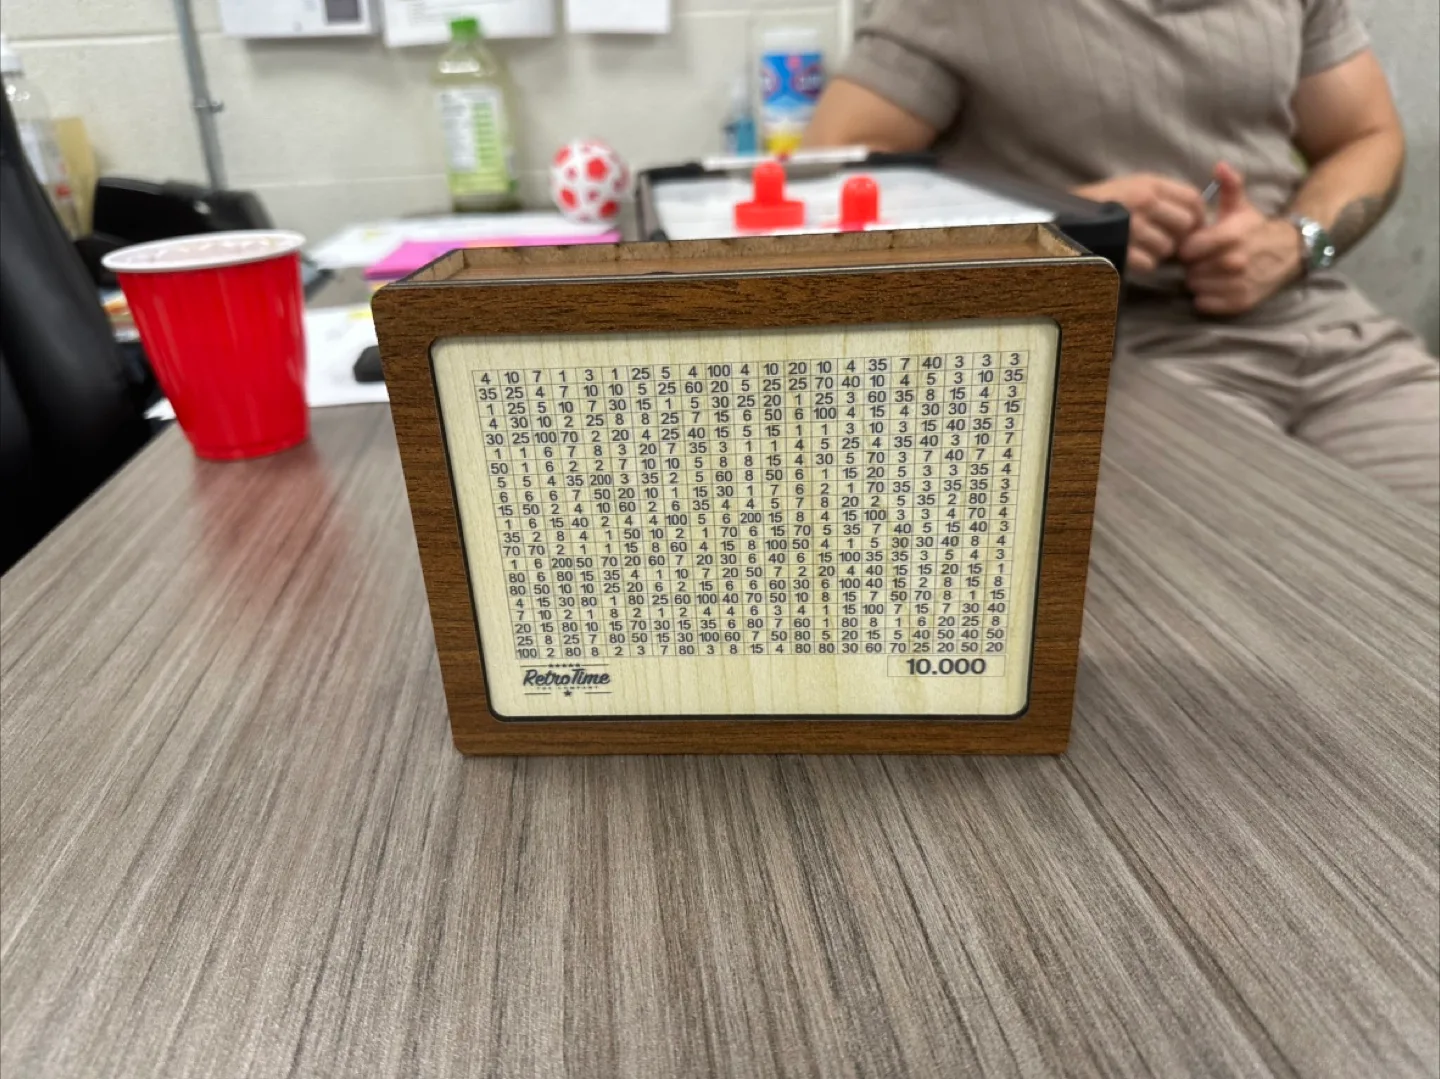 4 10 7 1 3 1 25 5 4 100 4 10 20 10 4 35 7 40 3 3 3
35 25 4 7 10 10 5 25 60 20 5 25 25 70 40 10 4 5 3 10 35
1 25 5 10 7 30 15 1 5 30 25 20 1 25 3 60 35 8 15 4 3
4 30 10 2 25 8 8 25 7 15 6 50 6 100 4 15 4 30 30 5 15
30 25 100 70 2 20 4 25 40 15 5 15 1 1 3 10 3 15 40 35 3
1 1 6 7 8 3 20 7 35 3 1 1 4 5 25 4 35 40 3 10 7
50 1 6 2 2 7 10 10 5 8 8 15 4 30 5 70 3 7 40 7 4
5 5 4 35 200 3 35 2 5 60 8 50 6 1 15 20 5 3 3 35 4
6 6 6 7 50 20 10 1 15 30 1 7 6 2 1 70 35 3 35 35 3
15 50 2 4 10 60 2 6 35 4 4 5 7 8 20 2 5 35 2 80 5
1 6 15 40 2 4 4 100 5 6 200 15 8 4 15 100 3 3 4 70 4
35 2 8 4 1 50 10 2 1 70 6 15 70 5 35 7 40 5 15 40 3
70 70 2 1 1 15 8 60 4 15 8 100 50 4 1 5 30 30 40 8 4
1 6 200 50 70 20 60 7 20 30 6 40 6 15 100 35 35 3 5 4 3
80 6 80 15 35 4 1 10 7 20 50 7 2 20 4 40 15 15 20 15 1
80 50 10 10 25 20 6 2 15 6 6 60 30 6 100 40 15 2 8 15 8
4 15 30 80 1 80 25 60 100 40 70 50 10 8 15 7 50 70 8 1 15
7 10 2 1 8 2 1 2 4 4 6 3 4 1 15 100 7 15 7 30 40
20 15 80 10 15 70 30 15 35 6 80 7 60 1 80 8 1 6 20 25 8
25 8 25 7 80 50 15 30 100 60 7 50 80 5 20 15 5 40 50 40 50
100 2 80 8 2 3 7 80 3 8 15 4 80 80 30 60 70 25 20 50 20
10.000
RetroTime
THE COMPANY